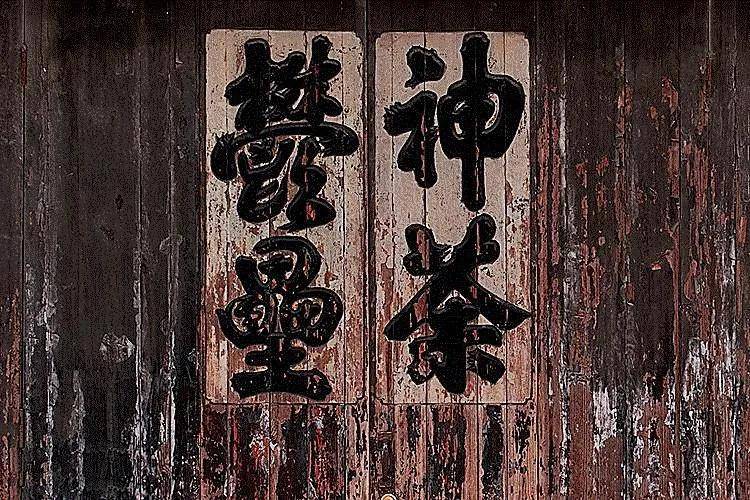 神荼
鬱壘